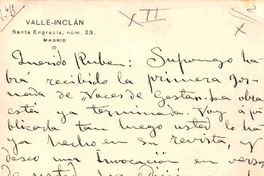 XII
VALLE-INCLÁN
Santa Engracia, núm. 23.
MADRID
Querido Ruben: Supongo ha-
brá recibido la primera jor-
nada de Voces de Gesta. La obra
está ya terminada. Voy á pu-
blicarla tan luego usted lo ha-
ya hecho en su revista, y
deseo una Invocación en versos
de usted